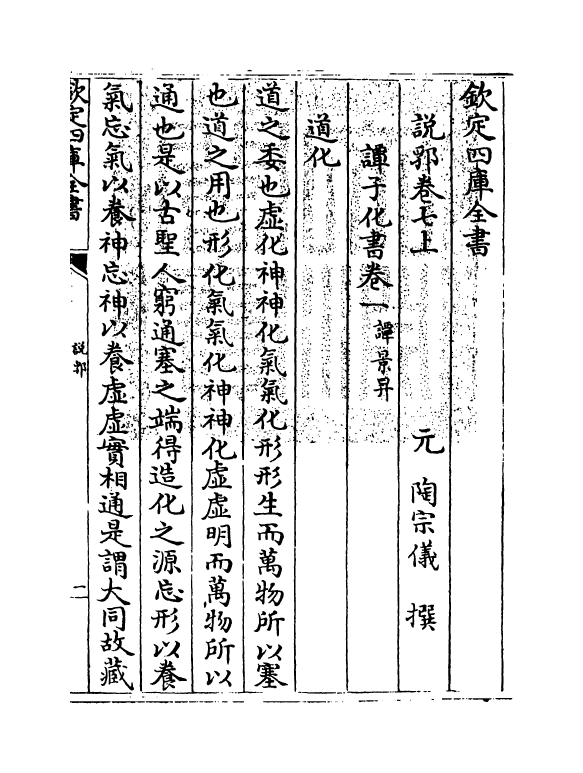 欽定四庫全書
説郛卷七上　元　陶宗儀　撰
譚子化書卷一 譚景昇
道化
道之委也虛化神神化氣氣化形形生而萬物所以塞
也道之用也形化氣氣化神神化虛虛明而萬物所以
通也是以古聖人窮通塞之端得造化之源忘形以養
氣忘氣以養神忘神以養虛虛實相通是謂大同故藏
欽定四庫全書
説郛
二